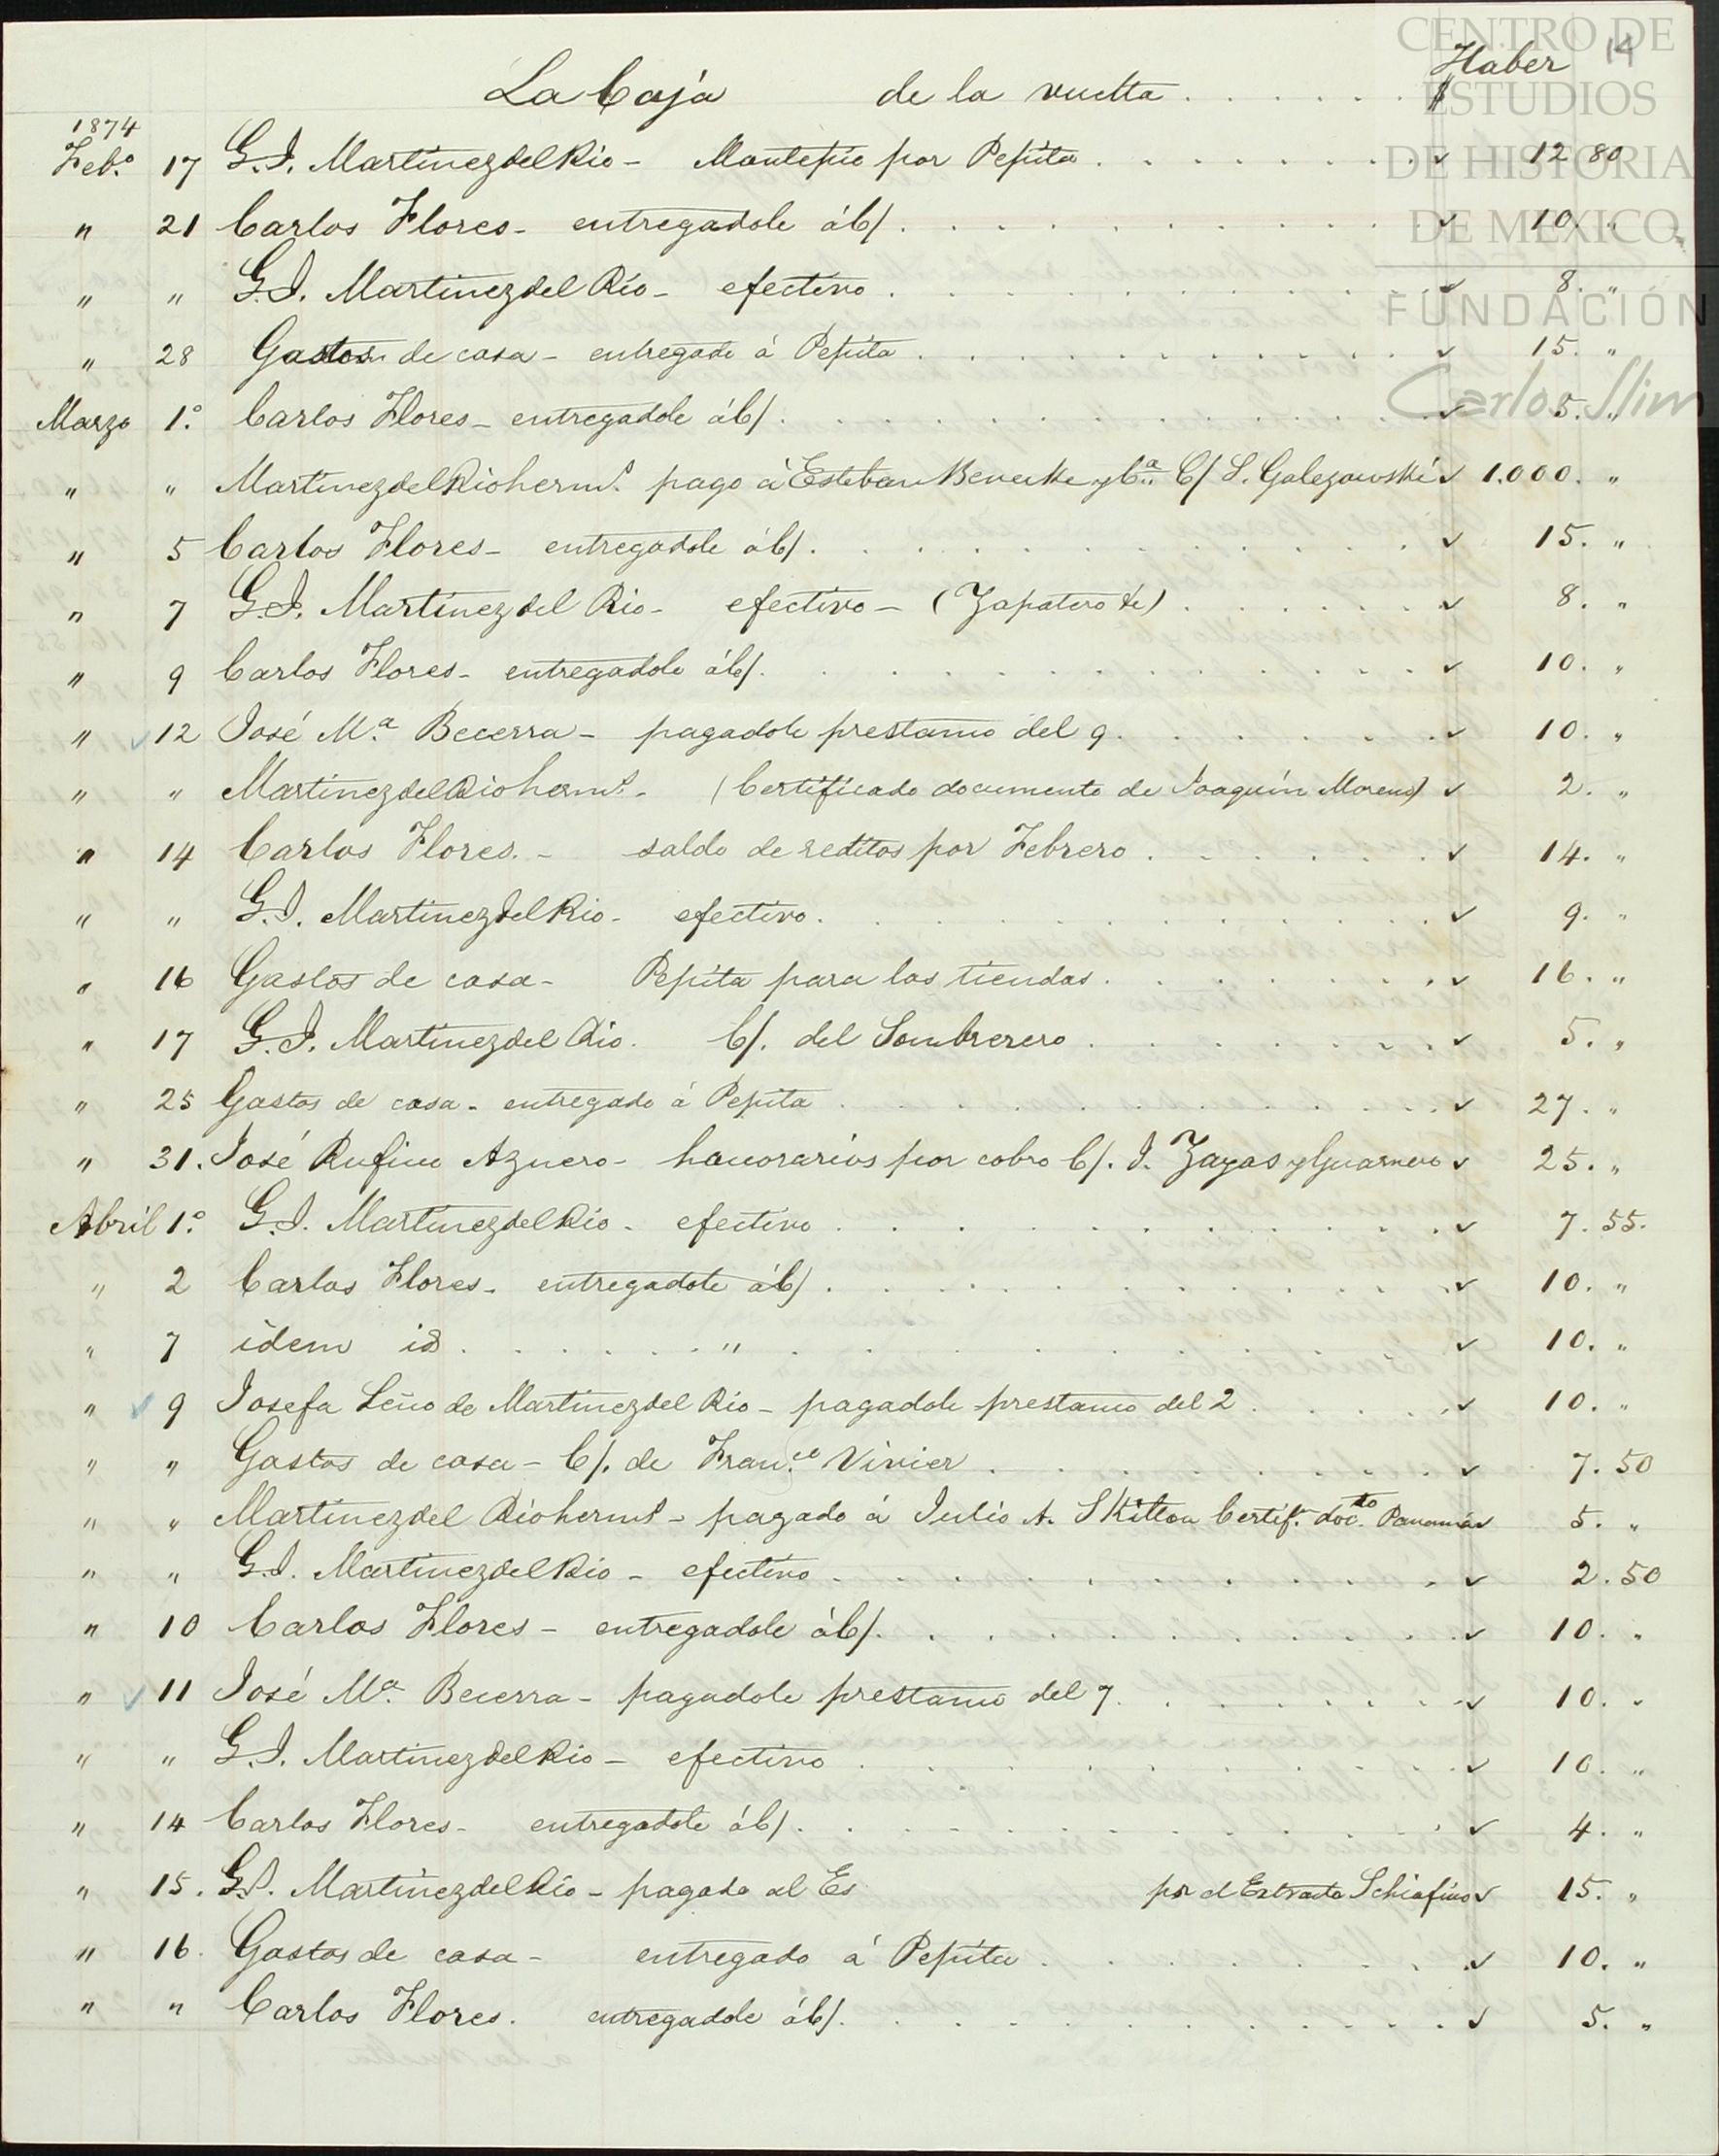 CENTRO DE
ESTUDIOS
DE HISTORIA
DE MEXICO
FUNDACIÓN
Carlos Slim
14
Haber
La Caja de la vuelta . . . . . . $
1874
Feb.o 17 G. I. Martinez del Rio - Montepio por Pepita . . . . . . ✓ 12 80
" 21 Carlos Flores - entregadole á C/ . . . . . . ✓ 10. "
" " G. I. Martinez del Rio - efectivo . . . . . . ✓ 8. "
" 28 Gastos de casa - entregado á Pepita . . . . . . ✓ 15. "
Marzo 1.o Carlos Flores - entregadole á C/ . . . . . . ✓ 5. "
" " Martinez del Rio herms. pago á Esteban Benecke y Ca. C/ S. Galezowski ✓ 1.000. "
" 5 Carlos Flores - entregadole á C/ . . . . . . ✓ 15. "
" 7 G. I. Martinez del Rio - efectivo - (Zapatero &) . . . . . . ✓ 8. "
" 9 Carlos Flores - entregadole á C/ . . . . . . ✓ 10. "
" ✓ 12 José M.a Becerra - pagadole prestamo del 9 . . . . . . ✓ 10. "
" " Martinez del Rio herms. - (Certificado documento de Joaquín Moreno) ✓ 2. "
" 14 Carlos Flores. - saldo de reditos por Febrero . . . . . . ✓ 14. "
" " G. I. Martinez del Rio - efectivo . . . . . . ✓ 9. "
" 16 Gastos de casa - Pepita para las tiendas . . . . . . ✓ 16. "
" 17 G. I. Martinez del Rio. C/. del Sombrerero . . . . . . ✓ 5. "
" 25 Gastos de casa - entregado á Pepita . . . . . . ✓ 27. "
" 31. José Rufino Aznero - honorarios por cobro C/. J. Zayas y Guarnero ✓ 25. "
Abril 1.o G. I. Martinez del Rio - efectivo . . . . . . ✓ 7. 55.
" 2 Carlos Flores - entregadole á C/ . . . . . . ✓ 10. "
" 7 idem id . . . . . . " . . . . . . ✓ 10. "
" ✓ 9 Josefa Leño de Martinez del Rio - pagadole prestamo del 2 . . . . . . ✓ 10. "
" " Gastos de casa - C/. de Fran.co Vivier . . . . . . ✓ 7. 50
" " Martinez del Rio herms - pagado á Julio A. Skilton Certif. doc.to Panamá ✓ 5. "
" " G. I. Martinez del Rio - efectivo . . . . . . ✓ 2. 50
" 10 Carlos Flores - entregadole á C/. . . . . . . ✓ 10. "
" ✓ 11 José Ma. Becerra - pagadole prestamo del 7 . . . . . . ✓ 10. "
" " G. I. Martinez del Rio - efectivo . . . . . . ✓ 10. "
" 14 Carlos Flores - entregadole á C/ . . . . . . ✓ 4. "
" 15. G. I. Martinez del Rio - pagado al Es por el Extracto Schiafino ✓ 15. "
" 16. Gastos de casa - entregado á Pepita . . . . . . ✓ 10. "
" " Carlos Flores. entregadole á C/. . . . . . . ✓ 5. "